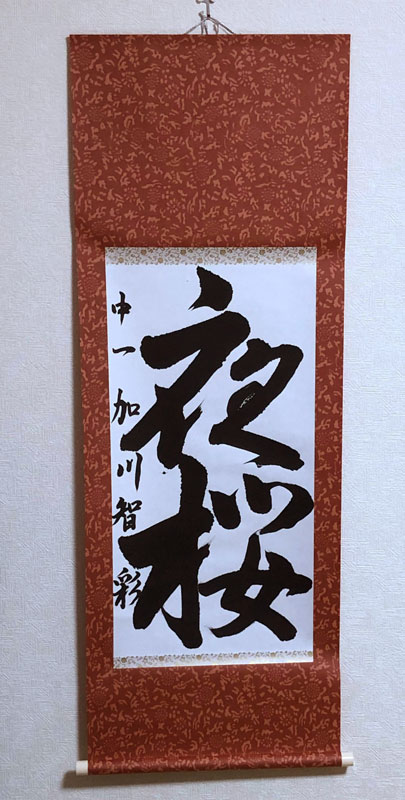 夜桜
中一 加川智彩